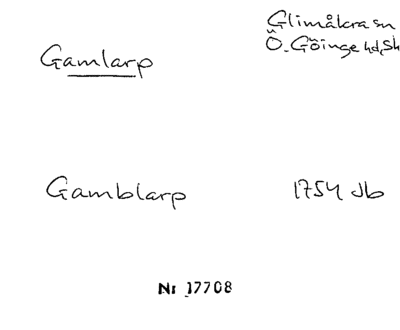 Glimåkra sn
Ö. Göinge hd, Sk
Gamlarp
Gamblarp 1754 Jb
Nr 17708